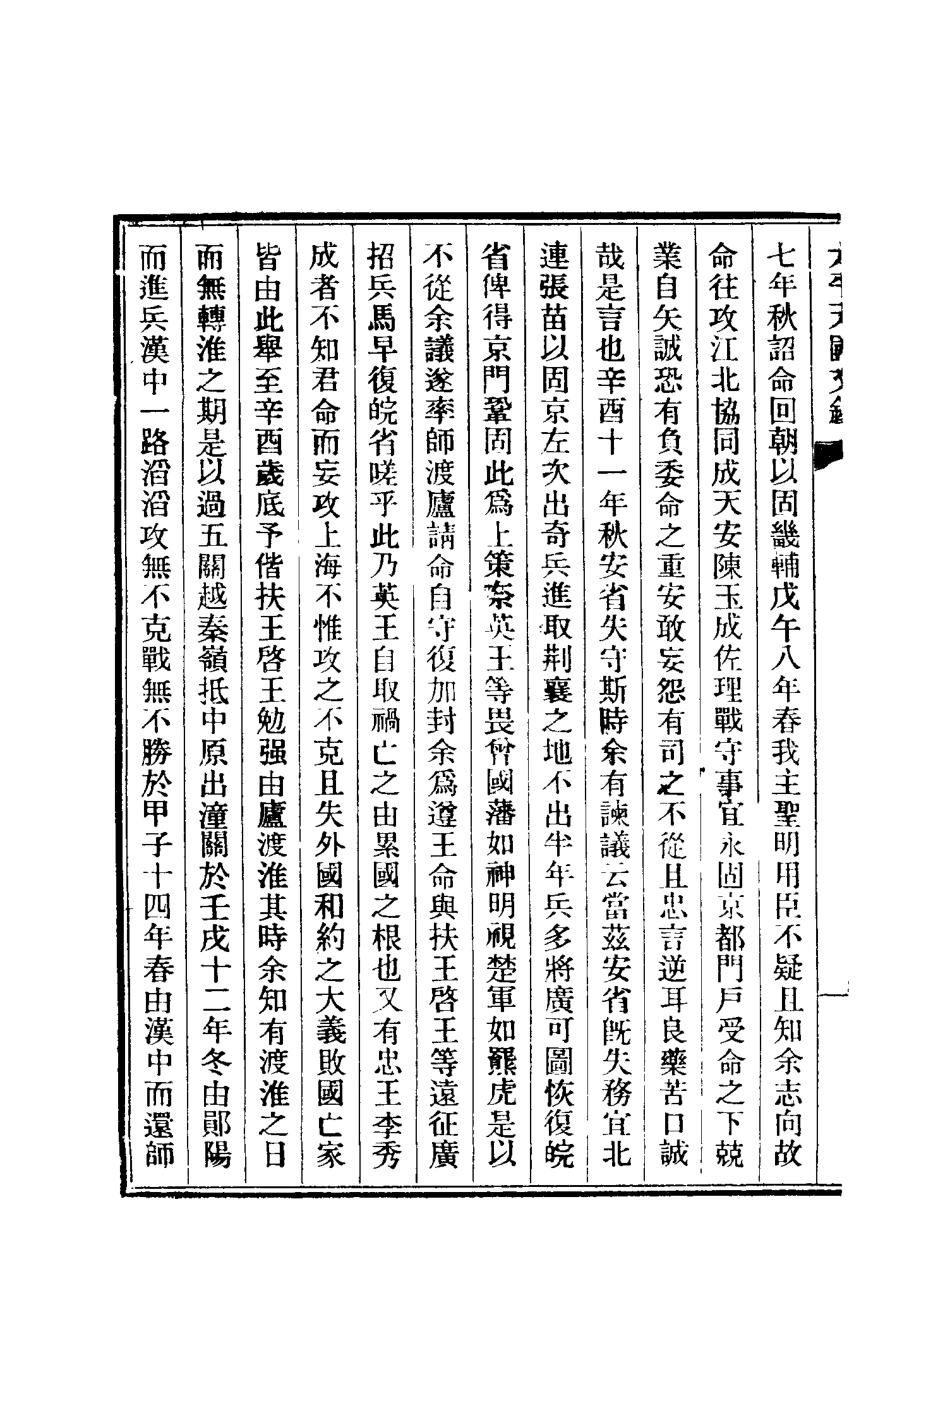 太平天國文鈔
七年秋詔命回朝以固畿輔戊午八年春我主聖明用臣不疑且知余志向故
命往攻江北協同成天安陳玉成佐理戰守事宜永固京都門戶受命之下兢
業自矢誠恐有負委命之重安敢妄怨有司之不從且忠言逆耳良藥苦口誠
哉是言也辛酉十一年秋安省失守斯時余有諫議云當茲安省旣失務宜北
連張苗以固京左次出奇兵進取荆襄之地不出半年兵多將廣可圖恢復皖
省俾得京門鞏固此爲上策奈英王等畏曾國藩如神明視楚軍如羆虎是以
不從余議遂率師渡廬請命自守復加封余爲遵王命與扶王啓王等遠征廣
招兵馬早復皖省嗟乎此乃英王自取禍亡之由累國之根也又有忠王李秀
成者不知君命而妄攻上海不惟攻之不克且失外國和約之大義敗國亡家
皆由此舉至辛酉歲底予偕扶王啓王勉强由廬渡淮其時余知有渡淮之日
而無轉淮之期是以過五關越秦嶺抵中原出潼關於壬戌十二年冬由鄖陽
而進兵漢中一路滔滔攻無不克戰無不勝於甲子十四年春由漢中而還師